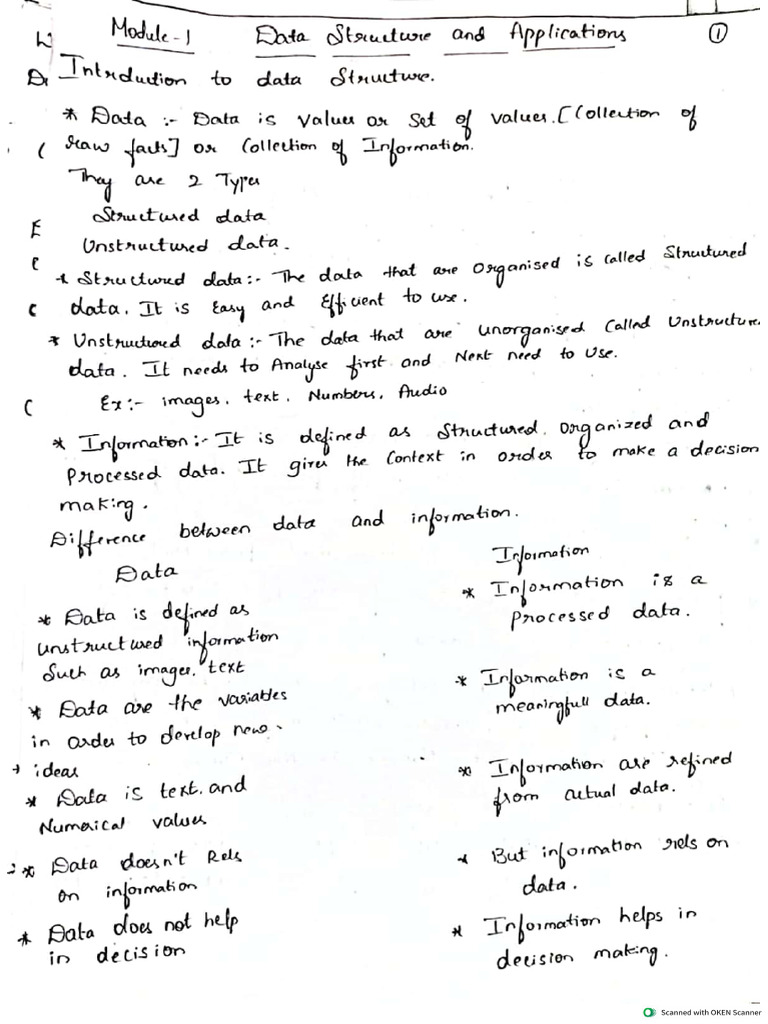 Module-1 Data Structure and Applications 1
Intrduction to data Structure.
* Data :- Data is values or set of values. [Collection of
raw facts] or Collection of Information.
They are 2 Types
Structured data
Unstructured data.
* Structured data:- The data that are Organised is called Structured
data. It is Easy and Efficient to use.
* Unstructured data :- The data that are unorganised Called Unstructure
data. It needs to Analyse first and Next need to Use.
Ex:- images, text, Numbers, Audio
* Information:- It is defined as Structured, Organized and
Processed data. It gives the Context in order to make a decision
making.
Difference between data and information.
Data
* Data is defined as
Unstructured information
Such as images, text
* Data are the variables
in order to develop new
ideas
* Data is text, and
Numerical values
* Data doesn't Rels
on information
* Data does not help
in decision
Information
* Information is a
Processed data.
* Information is a
meaningfull data.
* Information are refined
from actual data.
* But information rels on
data.
* Information helps in
decision making.
Scanned with OKEN Scanner